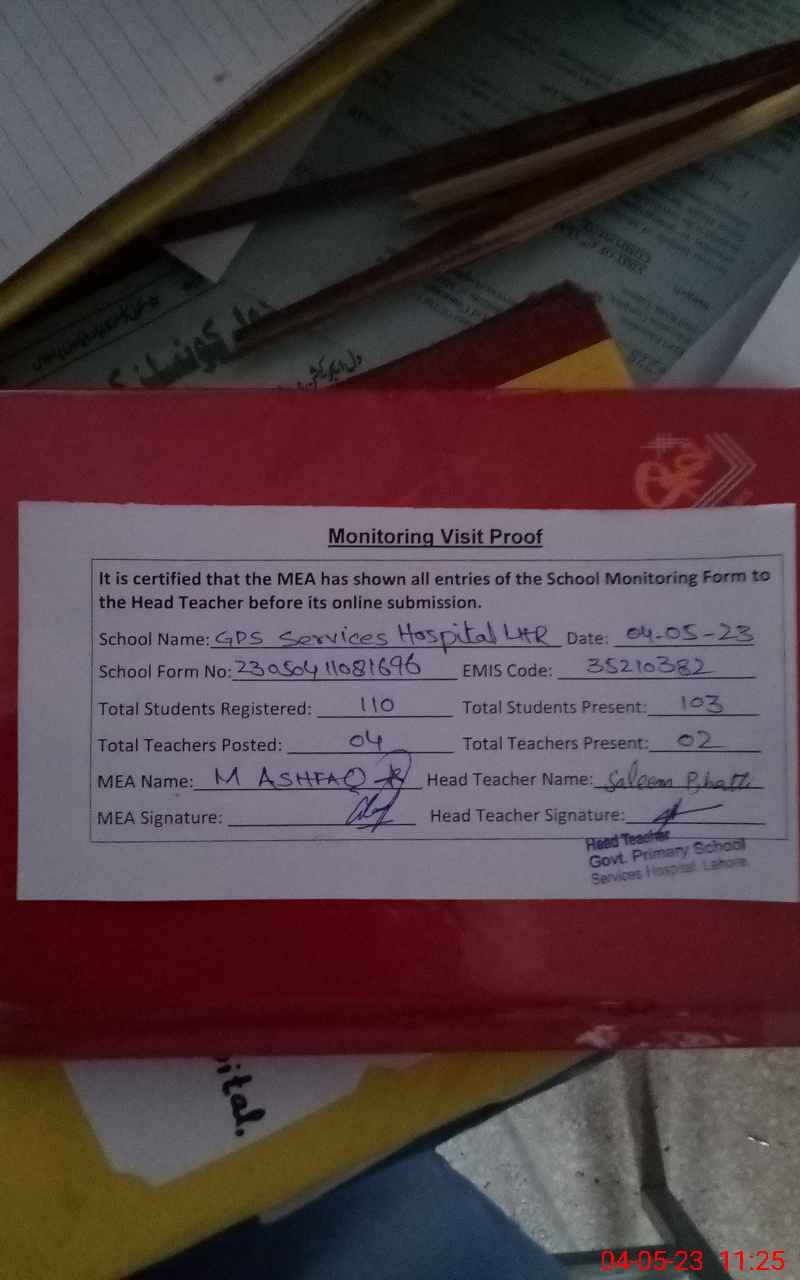 کونسل
Monitoring Visit Proof
It is certified that the MEA has shown all entries of the School Monitoring Form to
the Head Teacher before its online submission.
School Name: GPS Services Hospital LHR Date: 04-05-23
School Form No: 23050411081696 EMIS Code: 35210382
Total Students Registered: 110 Total Students Present: 103
Total Teachers Posted: 04 Total Teachers Present: 02
MEA Name: M ASHFAQ Head Teacher Name: Saleem Bhatti
MEA Signature: Head Teacher Signature:
Head Teacher
Govt. Primary School
Services Hospital Lahore
ital.
04-05-23 11:25